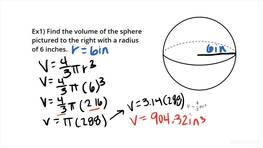 Ex1) Find the volume of the sphere
pictured to the right with a radius
of 6 inches. r = 6in
V = 4/3 π r³
V = 4/3 π (6)³
V = 4/3 π (216)
V = π (288)
V = 3.14 (288)
V = 904.32 in³
6in